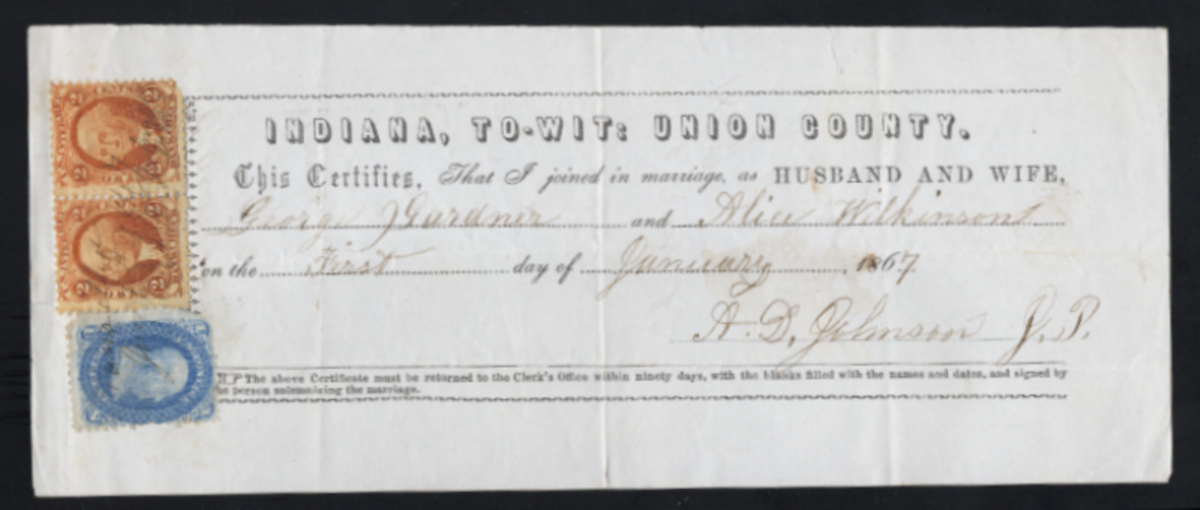 INDIANA, TO-WIT: UNION COUNTY.
This Certifies, That I joined in marriage, as HUSBAND AND WIFE,
George Gardner and Alice Wilkinson
on the First day of January 1867.
A. D. Johnson J. P.
The above Certificate must be returned to the Clerk's Office within ninety days, with the blanks filled with the names and dates, and signed by
the person solemnizing the marriage.
2 CENTS 2
2 2
2 2
2 2